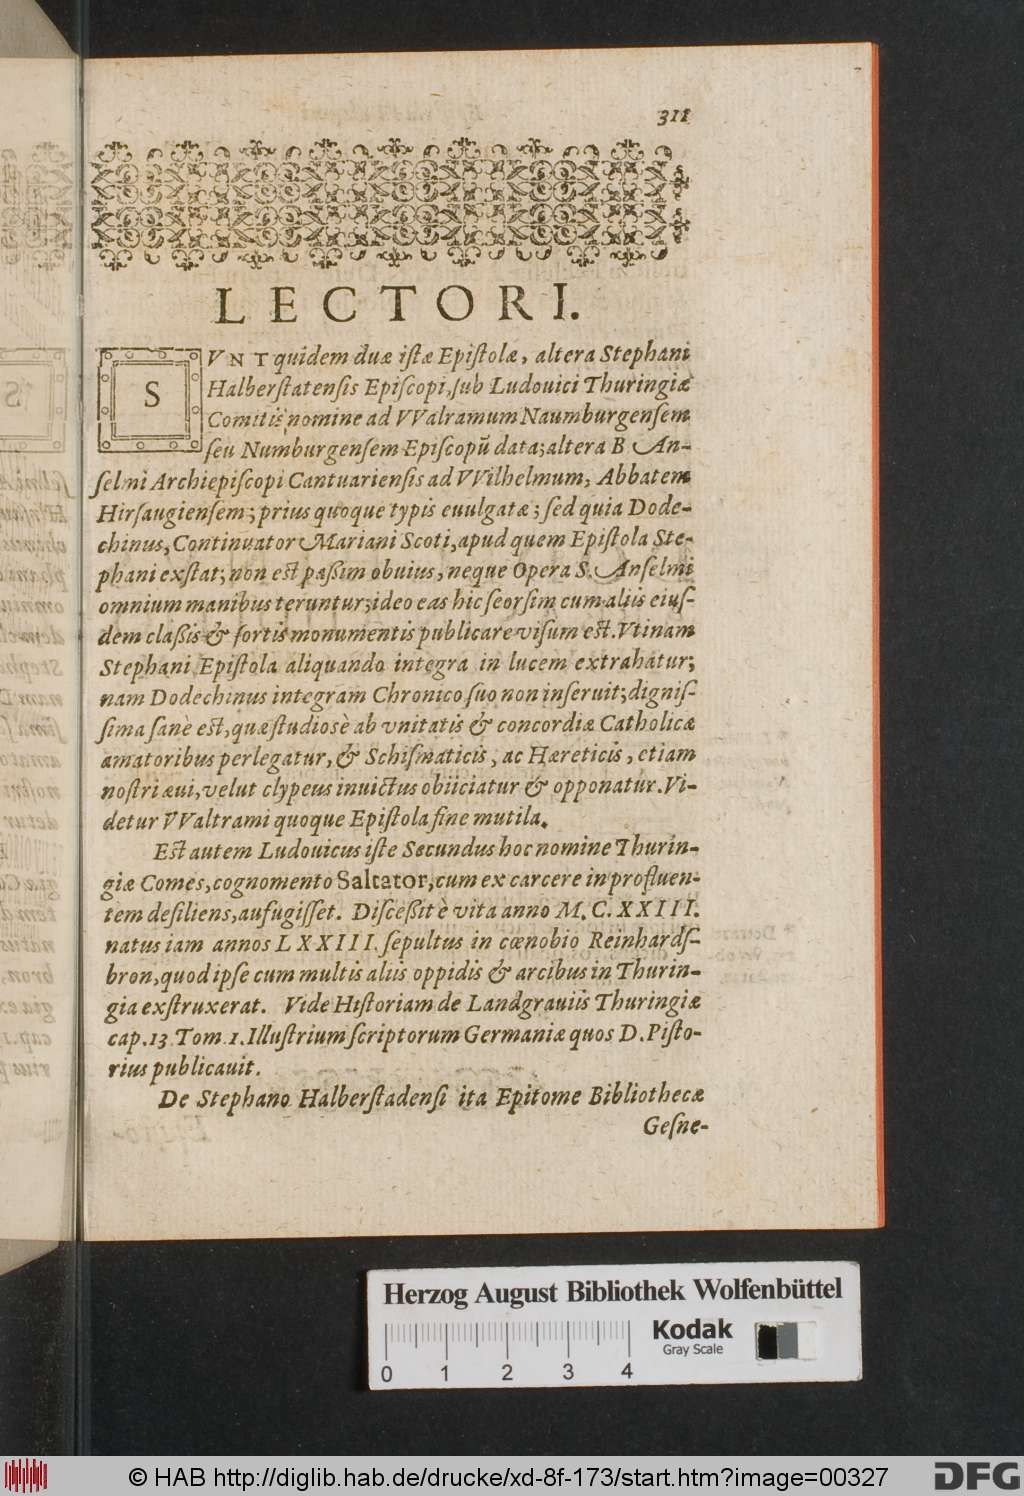 311
LECTORI.
SVNT quidem duæ istæ Epistolæ, altera Stephani
Halberſtatenſis Epiſcopi, ſub Ludouici Thuringiæ
Comitis nomine ad VValramum Naumburgenſem
ſeu Numburgenſem Epiſcopũ data; altera B An-
ſelmi Archiepiſcopi Cantuarienſis ad VVilhelmum, Abbatem
Hirſaugienſem; prius quoque typis euulgatæ; ſed quia Dode-
chinus, Continuator Mariani Scoti, apud quem Epiſtola Ste-
phani exſtat; non eſt paßim obuius, neque Opera S. Anſelmi
omnium manibus teruntur; ideo eas hic ſeorſim cum aliis eiuſ-
dem claßis & ſortis monumentis publicare viſum eſt. Vtinam
Stephani Epiſtola aliquando integra in lucem extrahatur;
nam Dodechinus integram Chronico ſuo non inſeruit; digniſ-
ſima ſanè eſt, quæ ſtudiosè ab vnitatis & concordiæ Catholicæ
amatoribus perlegatur, & Schiſmaticis, ac Hæreticis, etiam
noſtri æui, velut clypeus inuictus obiiciatur & opponatur. Vi-
detur VValtrami quoque Epiſtola fine mutila.
Eſt autem Ludouicus iſte Secundus hoc nomine Thurin-
giæ Comes, cognomento Saltator, cum ex carcere in profluen-
tem deſiliens, aufugiſſet. Diſceßit è vita anno M. C. XXIII.
natus iam annos LXXIII. ſepultus in cœnobio Reinhardſ-
bron, quod ipſe cum multis aliis oppidis & arcibus in Thurin-
gia exſtruxerat. Vide Hiſtoriam de Landgrauiis Thuringiæ
cap. 13 Tom. 1. Illuſtrium ſcriptorum Germaniæ quos D. Piſto-
rius publicauit.
De Stephano Halberſtadenſi ita Epitome Bibliothecæ
Geſne-
Herzog August Bibliothek Wolfenbüttel
Kodak
Gray Scale
0 1 2 3 4
© HAB http://diglib.hab.de/drucke/xd-8f-173/start.htm?image=00327
DFG